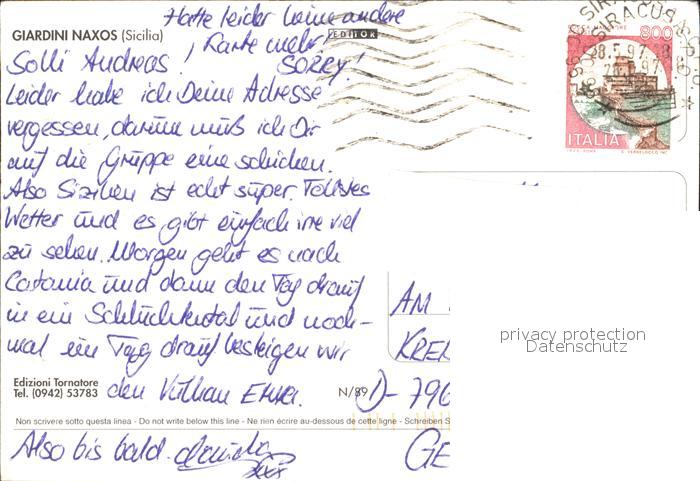 Hatte leider keine andere
Karte mehr!
SORRY!
GIARDINI NAXOS (Sicilia)
EDITOR
Salli Andreas!
Leider habe ich Deine Adresse
vergessen, darum muß ich Dir
auf die Gruppe eine schicken.
Also Sizilien ist echt super. Tollstes
Wetter und es gibt einfach irre viel
zu sehen. Morgen geht es nach
Catania und dann den Tag drauf
in ein Schluchtental und noch-
mal ein Tag drauf besteigen wir
den Vulkan Etna.
Edizioni Tornatore
Tel. (0942) 53783
N/89
Non scrivere sotto questa linea - Do not write below this line - Ne rien écrire au-dessous de cette ligne - Schreiben S
Also bis bald.
800
SIRACUSA
ITALIA
AM
D-790
GE
privacy protection
Datenschutz